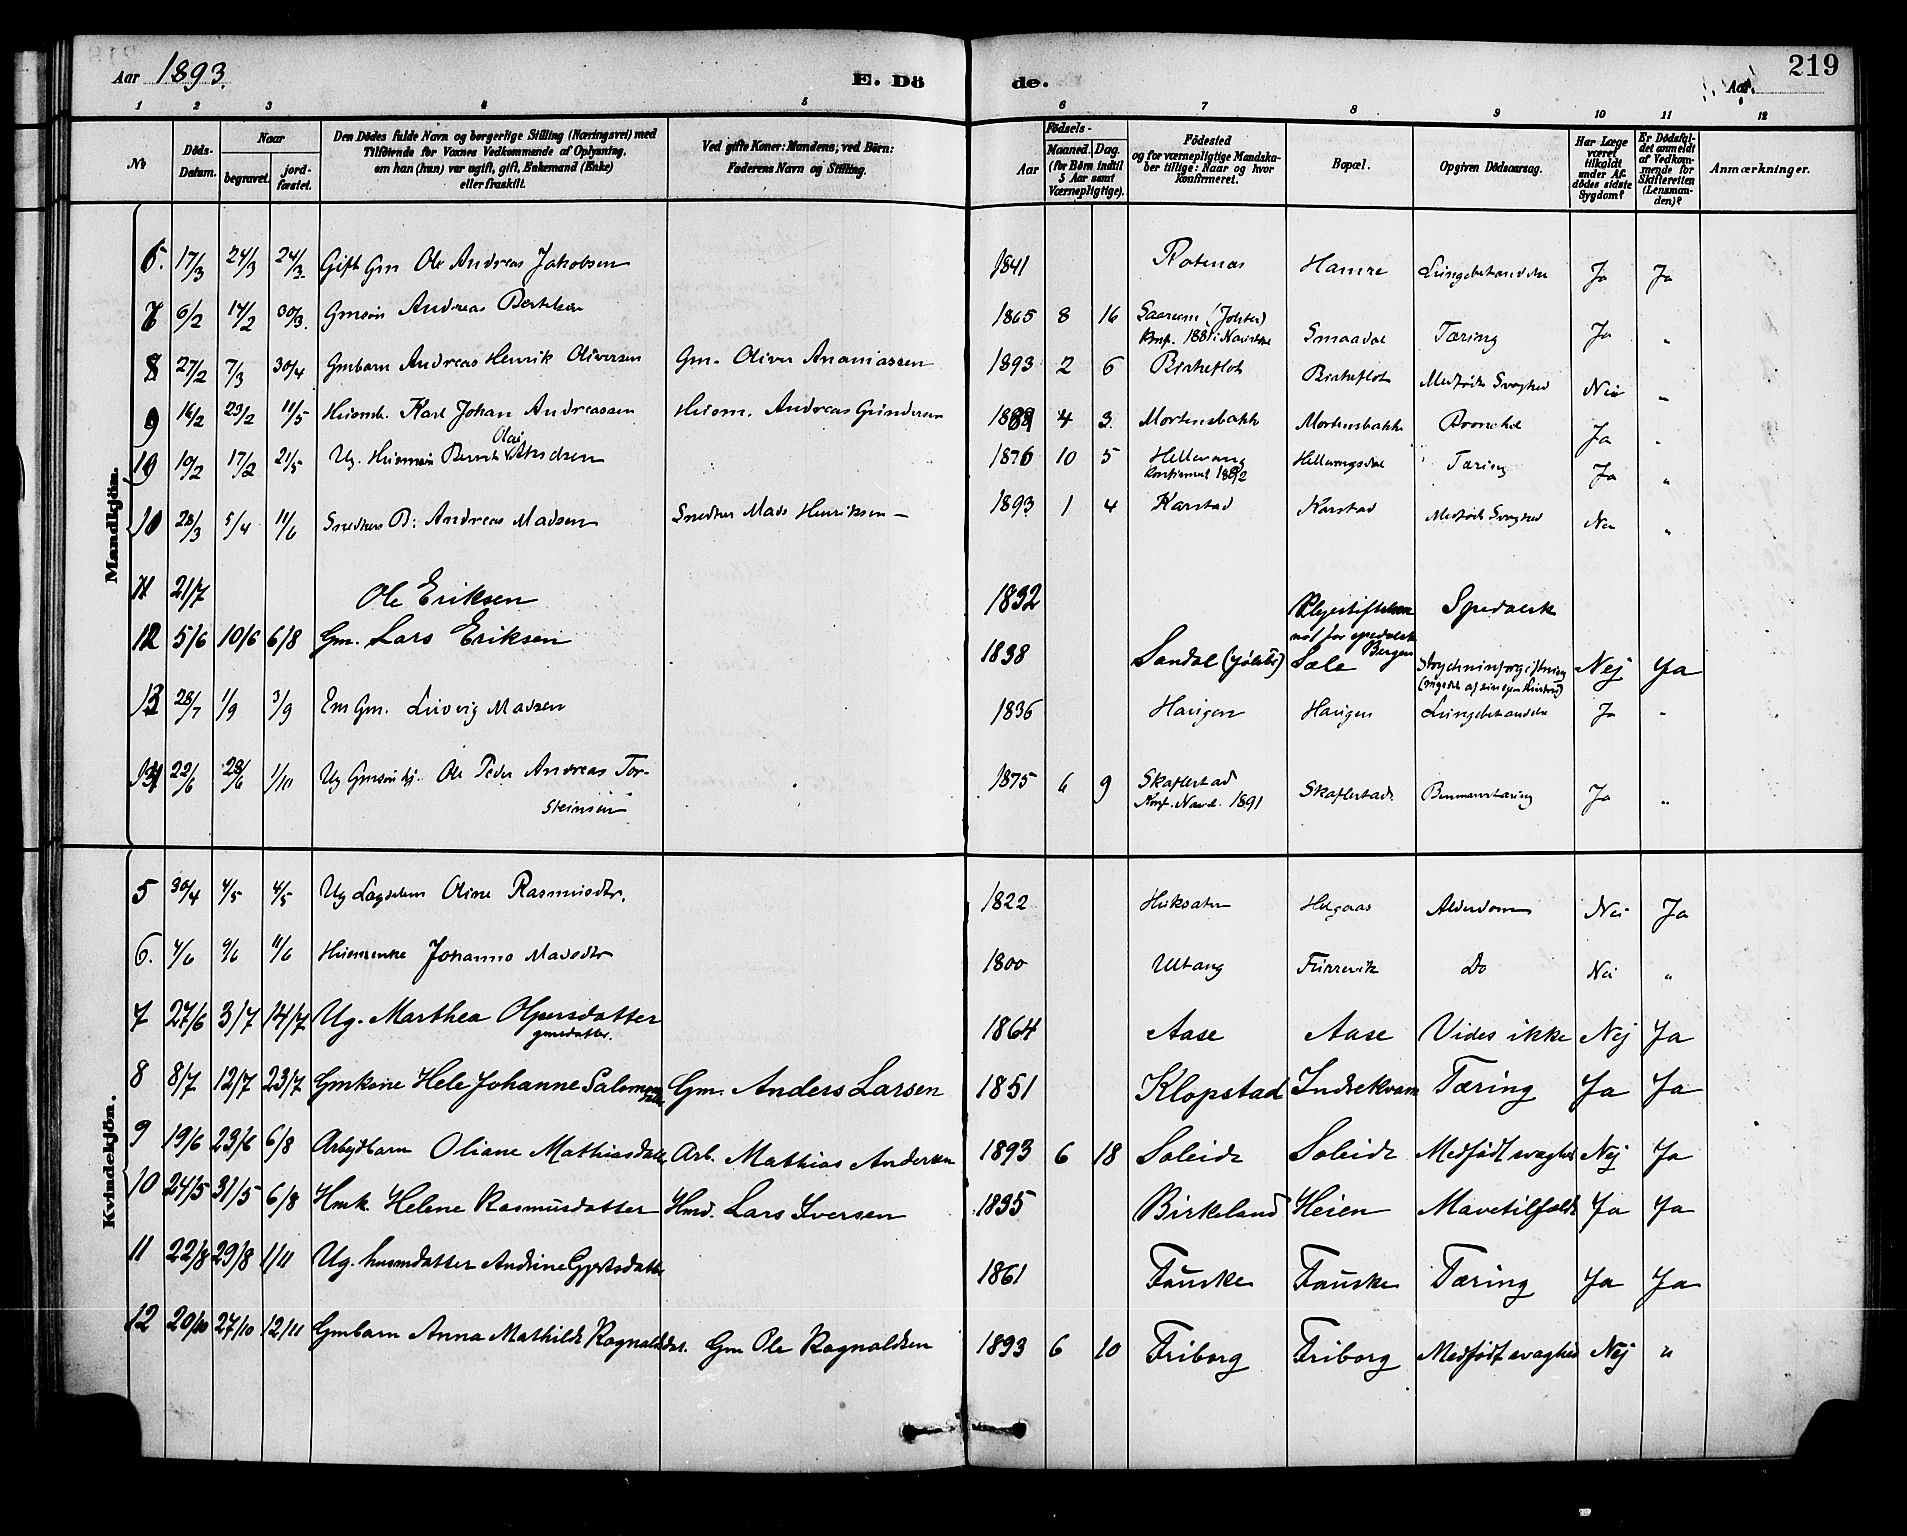 Aar 1893.
E. Döde.
Aar
219
1 2 3 4 5 6 7 8 9 10 11 12
No
Döds-Datum.
Naar
begravet.
jord-fæstet.
Den Dödes fulde Navn og borgerlige Stilling (Næringsvei) med Tilföiende for Voxnes Vedkommende af Oplysning, om han (hun) var ugift, gift, Enkemand (Enke) eller fraskilt.
Ved gifte Koner: Mandens; ved Börn: Faderens Navn og Stilling.
Födsels-
Aar
Maaned. Dag.
(for Börn indtil 5 Aar samt Værnepligtige).
Födested og for værnepligtige Mandskaber tillige: Naar og hvor konfirmeret.
Bopæl.
Opgiven Dödsaarsag.
Har Læge været tilkaldt under Afdödes sidste Sygdom?
Er Dödsfaldet anmeldt af Vedkommende for Skifteretten (Lensmanden)?
Anmærkninger.
Mandkjön.
6. 17/3 24/3 24/3 Gift Gm Ole Andreas Jakobsen 1841 Hamre Ja Ja
7 6/2 14/2 30/3. Gmsøn Andreas Bertelsen 1865 8 16 (Jølster) Konf. 1881 i Smaadal Tæring Ja "
8 27/2 7/3 30/4 Gmbarn Andreas Henrik Oliversen Gm. Oliver Ananiassen 1893 2 6 Birkeflot Birkeflot Medfødt Svaghed Nei "
9 16/2 23/2 11/5 Karl Johan Andreassen Andreas Gundersen 4 3 Mortensbakk Mortensbakk Ja "
10 10/2 17/2 21/5 Ug. Bernt Olai Andersen 1876 10 5 Hellevang konfirmeret 1892 Hellevangsdal Tæring Ja "
10 28/3 5/4 11/6 Snedkers B: Andreas Madsen Snedker Mads Henriksen – 1893 1 4 Karstad Karstad Medfødt Svaghed Nei "
11 21/7 Ole Eriksen 1832 Plejestiftelsen no 1 for spedalsk Bergen Spedalsk
12 5/6 10/6 6/8 Gm. Lars Eriksen 1838 Sandal (Jølster) Sæle Strychninforgiftning Nej Ja
13 28/7 1/9 3/9 Em Gm. Ludvig Madsen 1836 Haugen Haugen Ja "
22/6 28/6 1/10 Ug Gmsøn Ole Peder Andreas Torsteinsen 1875 6 9 Skaflestad Konf. 1891 Skaflestad Ja "
Kvindekjön.
5 30/4 4/5 4/5 Ug Oline Rasmusdtr. 1822 Helgaas Alderdom Nei Ja
6. 4/6 9/6 11/6 Johanna Madsdtr 1800 Ultang Furrevik Do Nei "
7 27/6 3/7 14/7 Ug. Marthea gmsdatter. 1864 Aase Aase Vides ikke Nej Ja
8 8/7 12/7 23/7 Gmkone Hele Johanne Salomonsdatter Gm. Anders Larsen 1851 Klopstad Indrekvam Tæring Ja Ja
9 19/6 23/6 6/8 Arbejdbarn Oliane Mathiasdatter Arb. Mathias Andersen 1893 6 18 Soleide Soleide Medfødt svaghed Nej Ja
10 24/5 31/5 6/8 Hmk. Helene Rasmusdatter Hmd. Lars Iversen 1835 Birkeland Heien Mavetilfælde Ja Ja
11 22/8 29/8 1/11 Ug. husmdatter Andrine Gjertsdatter 1861 Fauske Fauske Tæring Ja Ja
12 20/10 27/10 12/11 Gmbarn Anna Mathilde Ragnaldsdat. Gm Ole Ragnaldsen 1893 6 10 Friborg Friborg Medfødt svaghed Nej "